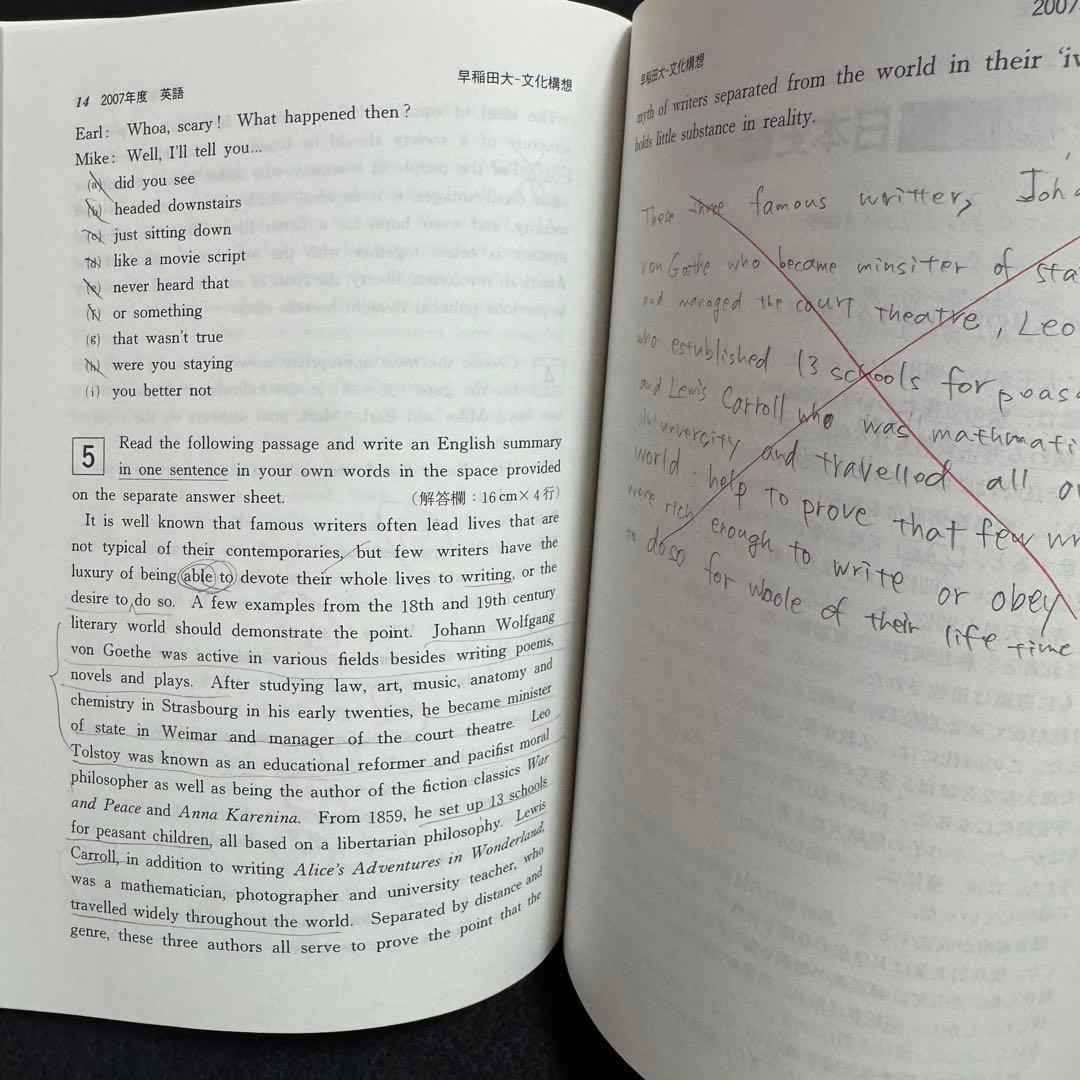 14 2007年度 英語
早稲田大-文化構想
Earl: Whoa, scary! What happened then?
Mike: Well, I'll tell you...
(a) did you see
(b) headed downstairs
(c) just sitting down
(d) like a movie script
(e) never heard that
(f) or something
(g) that wasn't true
(h) were you staying
(i) you better not
5 Read the following passage and write an English summary
in one sentence in your own words in the space provided
on the separate answer sheet. (解答欄:16cm×4行)
It is well known that famous writers often lead lives that are
not typical of their contemporaries, but few writers have the
luxury of being able to devote their whole lives to writing, or the
desire to do so. A few examples from the 18th and 19th century
literary world should demonstrate the point. Johann Wolfgang
von Goethe was active in various fields besides writing poems,
novels and plays. After studying law, art, music, anatomy and
chemistry in Strasbourg in his early twenties, he became minister
of state in Weimar and manager of the court theatre. Leo
Tolstoy was known as an educational reformer and pacifist moral
philosopher as well as being the author of the fiction classics War
and Peace and Anna Karenina. From 1859, he set up 13 schools
for peasant children, all based on a libertarian philosophy. Lewis
Carroll, in addition to writing Alice's Adventures in Wonderland,
was a mathematician, photographer and university teacher, who
travelled widely throughout the world. Separated by distance and
genre, these three authors all serve to prove the point that the
2007
早稲田大-文化構想
myth of writers separated from the world in their
holds little substance in reality.
These three famous writters, Joh
von Goethe who became minsiter of sta
and managed the court theatre, Leo
who established 13 schools for peas
and Lewis Carroll who was mathmati
unversity and travelled all
world. help to prove that few wr
were rich enough to write or obey
to do so for whole of their life time